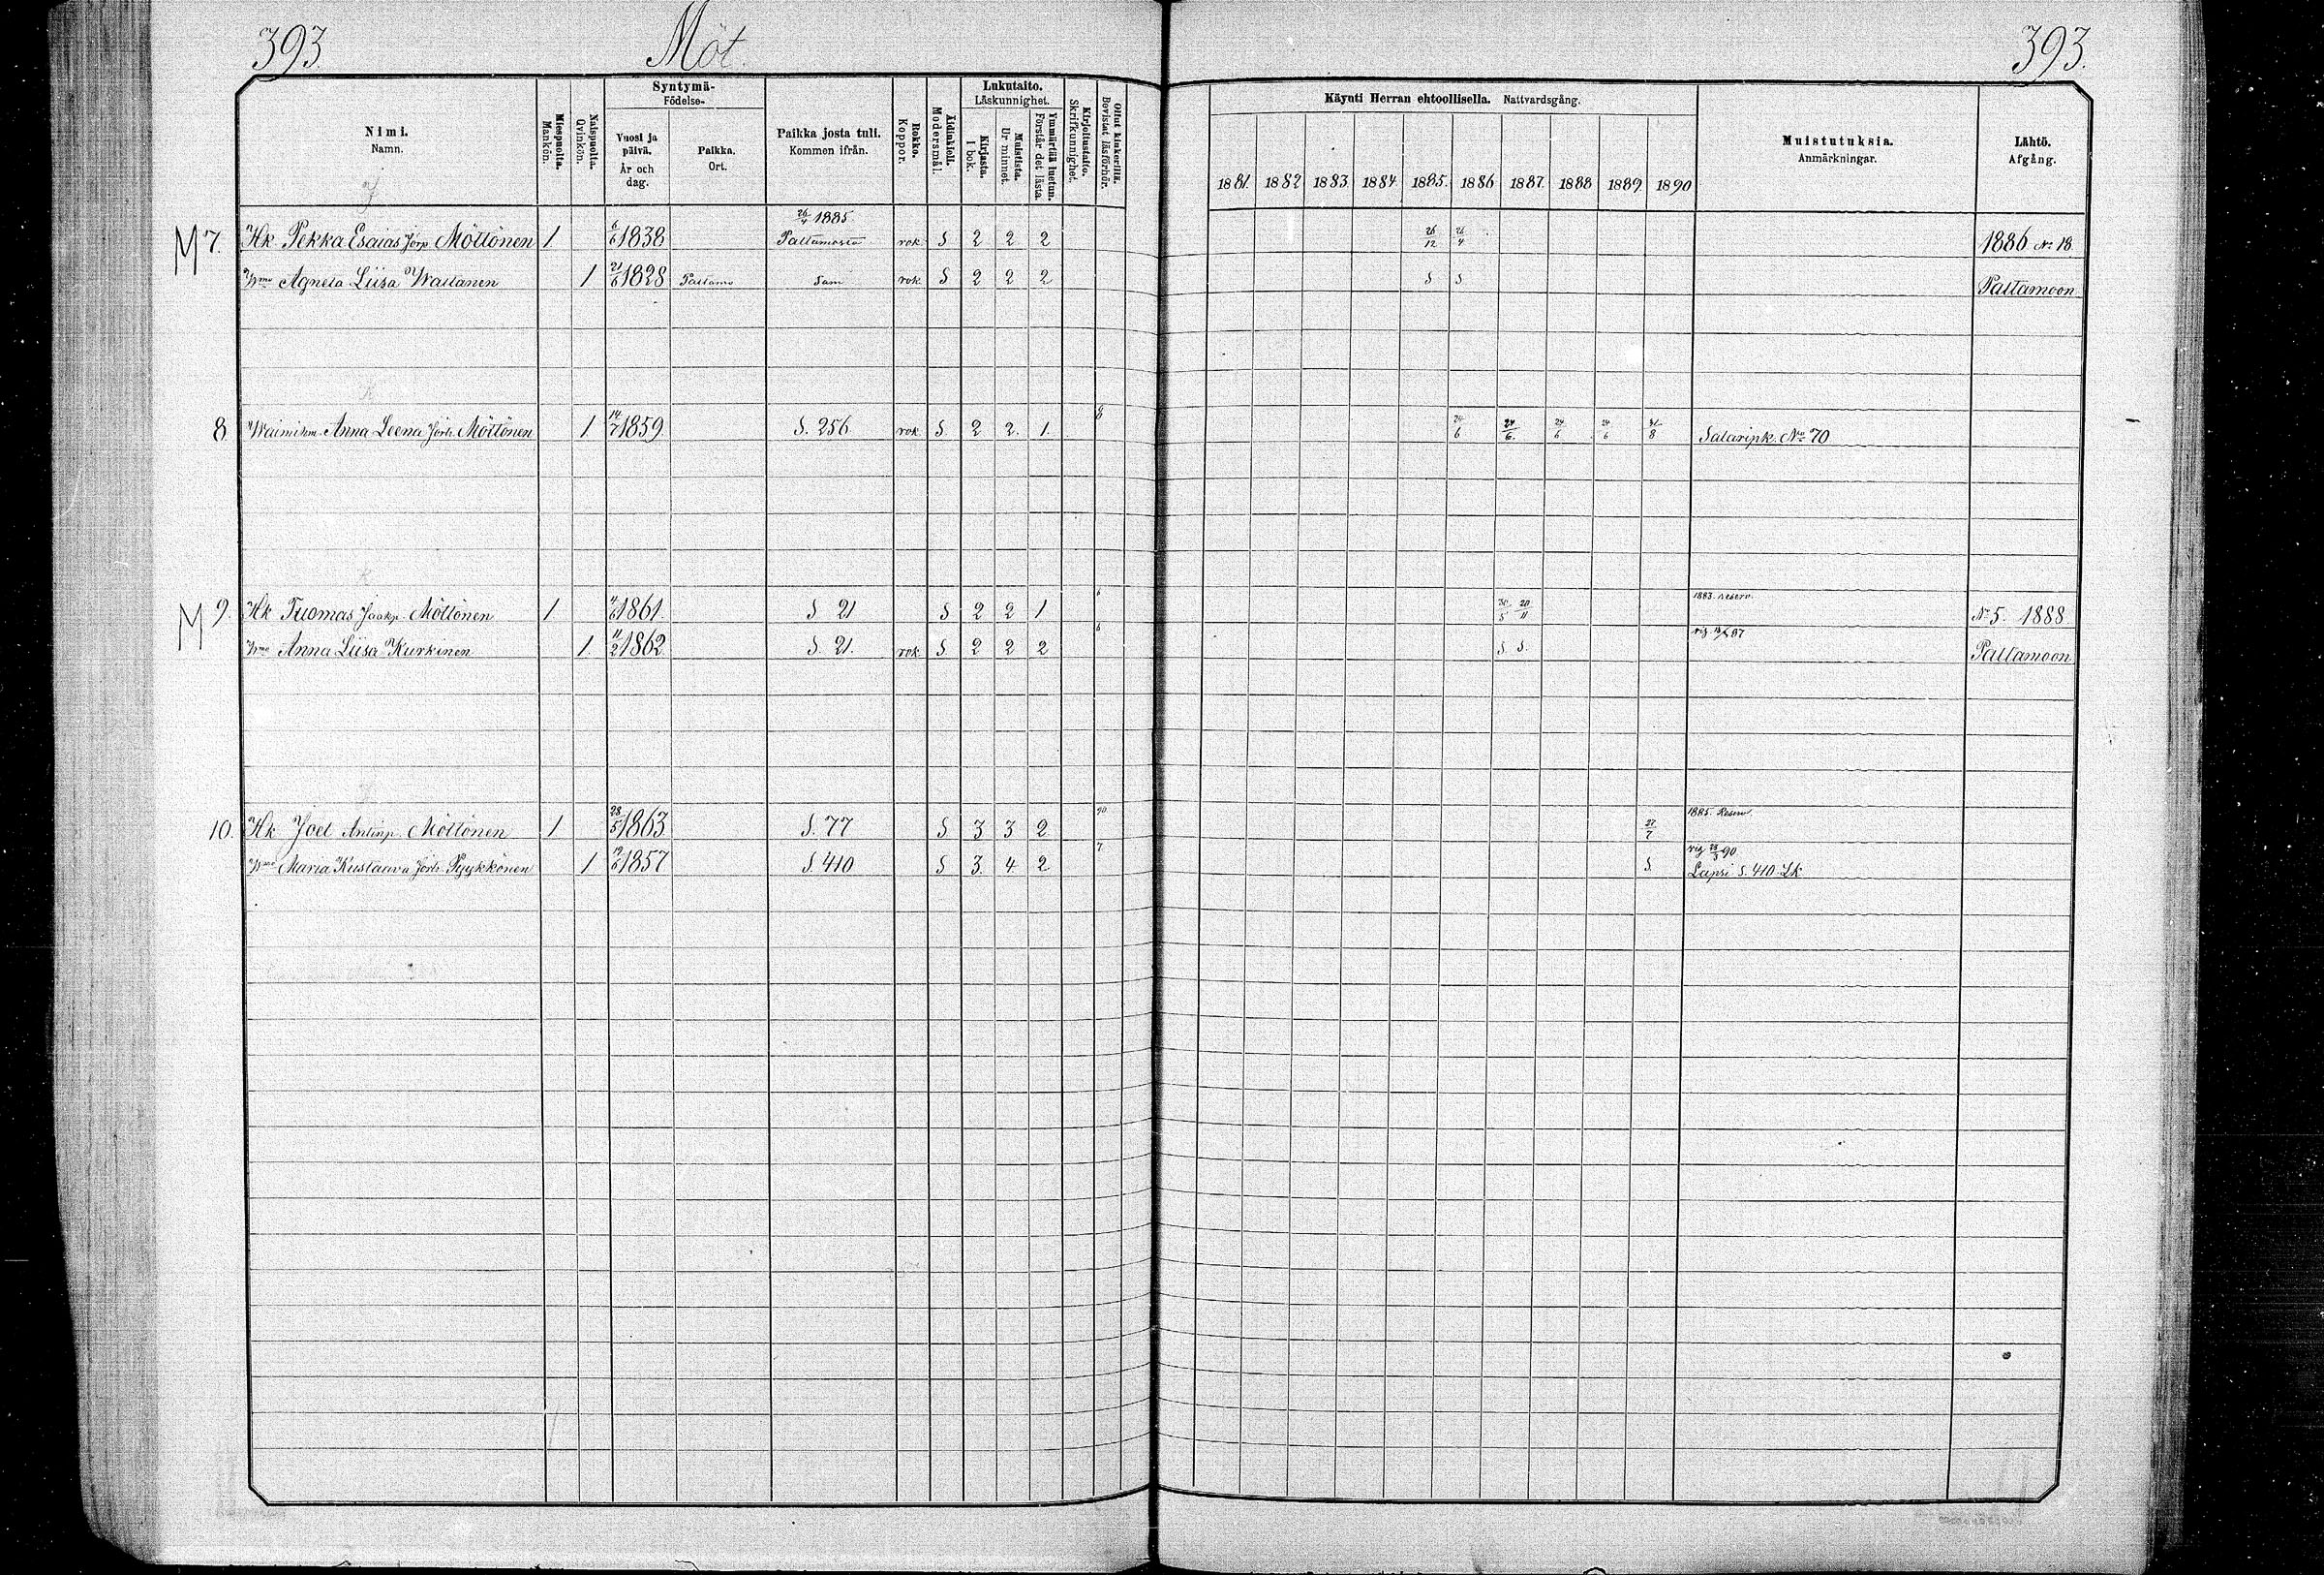 393. Möt. 393.
Nimi. Namn. Miespuolta. Mankön. Naispuolta. Qvinkön. Syntymä- Födelse- Vuosi ja päivä. År och dag. Paikka. Ort. Paikka josta tuli. Kommen ifrån. Rokko. Koppor. Äidinkieli. Modersmål. Lukutaito. Läskunnighet. Kirjasta. I bok. Muistista. Ur minnet. Ymmärtää luetun. Förstår det lästa. Kirjoitustaito. Skrifkunnighet. Ollut kinkerillä. Bevistat läsförhör. Käynti Herran ehtoollisella. Nattvardsgång. Muistutuksia. Anmärkningar. Lähtö. Afgång.
1881. 1882 1883. 1884 1885. 1886 1887. 1888 1889. 1890
26/4 1885
M 7. Hk Pekka Esaias Jörp. Möttönen 1 6/6 1838 Paltamosta rok. S 2 2 2 26/12 26/4 1886 No 18
Wmo Agneta Liisa Wattanen 1 21/6 1828 Paltamo Sam rok. S 2 2 2 S S Paltamoon
8 Waimitön Anna Leena Jört. Möttönen 1 14/7 1859 S. 256 rok S. 2 2. 1. 8 24/6 24/6. 24/6 24/6 31/8 Salaripk. No 70
M 9. Hk Tuomas Jaakp. Möttönen 1 4/6 1861. S 21 S 2 2 1 6 30/5 20/11 1883. reserv. No 5. 1888
Wmo Anna Liisa Kurkinen 1. 11/2 1862 S. 21. rok. S. 2 2 2 6 S S. Paltamoon
10. Hk Joel Antinp. Möttönen 1 28/5 1863 S. 77 S 3 3 2 90 27/7 1885. Reserv.
Wmo Maria Kustaava Jört. Pyykkönen 1 19/6 1857 S. 410 S 3. 4 2 7 S. vig 23/3 90
Lapsi S. 410. Lk